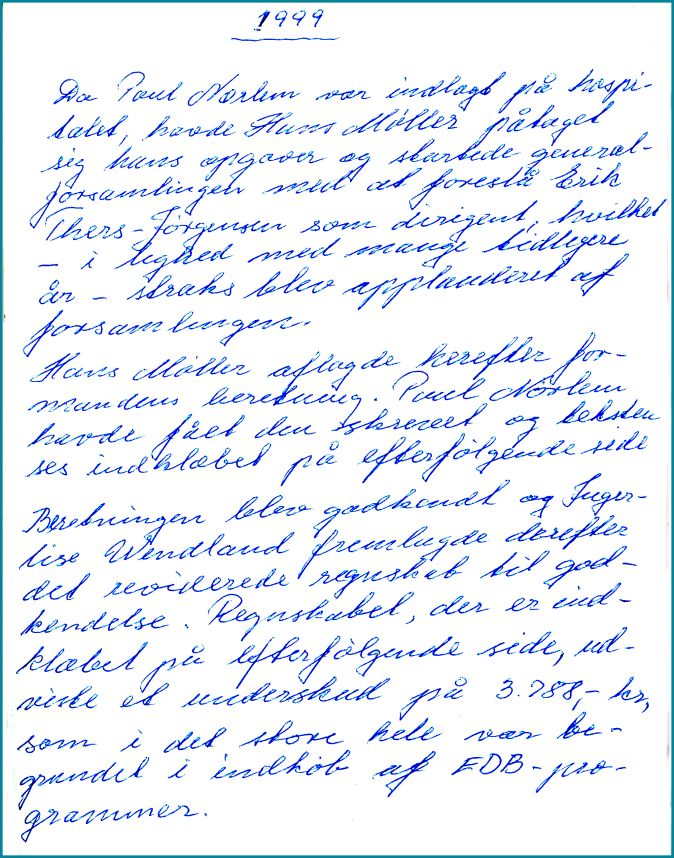 1999
Da Poul Nørlem var indlagt på hospi-
talet, havde Hans Møller påtaget
sig hans opgaver og startede general-
forsamlingen med at foreslå Erik
Thers-Jørgensen som dirigent, hvilket
- i lighed med mange tidligere
år - straks blev applauderet af
forsamlingen.
Hans Møller aflagde herefter for-
mandens beretning. Poul Nørlem
havde fået den skrevet og teksten
ses indklæbet på efterfølgende side
Beretningen blev godkendt og Inger-
lise Wendland fremlagde derefter
det reviderede regnskab til god-
kendelse. Regnskabet, der er ind-
klæbet på efterfølgende side, ud-
viste et underskud på 3.788,- kr,
som i det store hele var be-
grundet i indkøb af EDB-pro-
grammer.